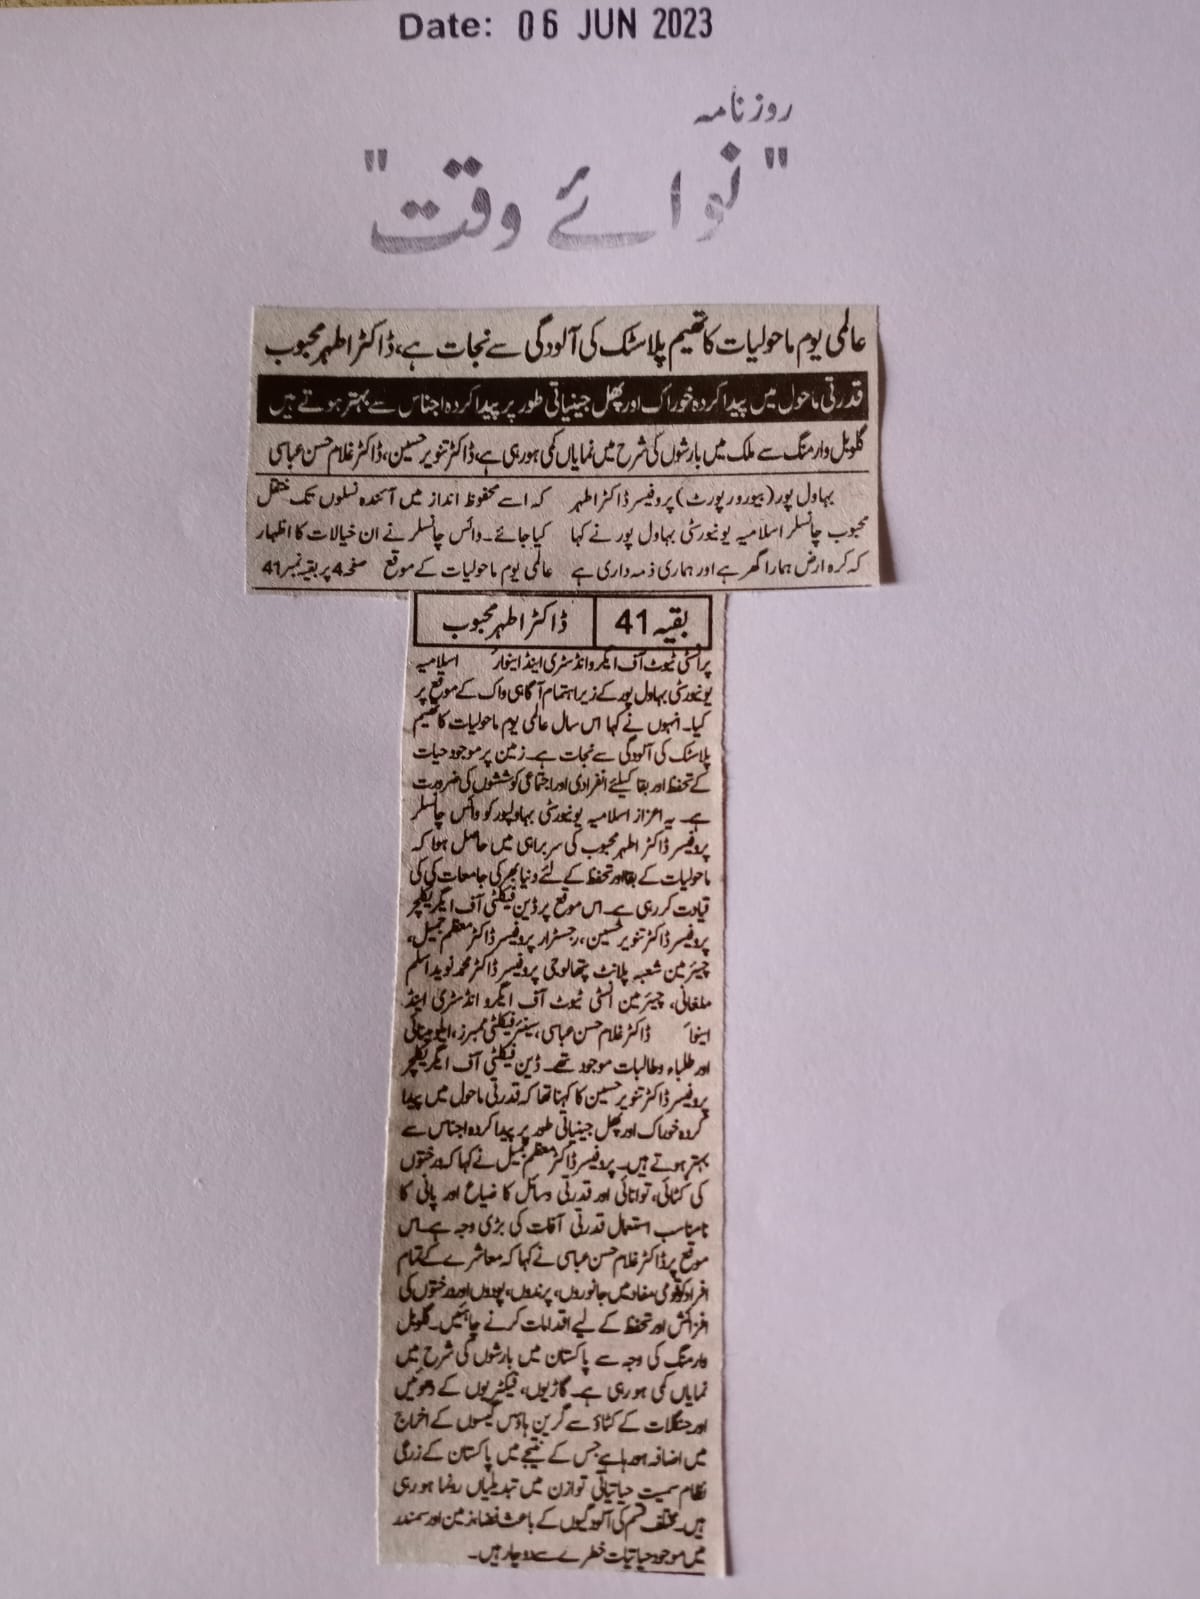 Date: 06 JUN 2023
روزنامہ
"نوائے وقت"
عالمی یوم ماحولیات کا تھیم پلاسٹک کی آلودگی سے نجات ہے، ڈاکٹر اطہر محبوب
قدرتی ماحول میں پیدا کردہ خوراک اور پھل جینیاتی طور پر پیدا کردہ اجناس سے بہتر ہوتے ہیں
گلوبل وارمنگ سے ملک میں بارشوں کی شرح میں نمایاں کمی ہو رہی ہے، ڈاکٹر تنویر حسین، ڈاکٹر غلام حسن عباسی
بہاول پور (بیورو رپورٹ) پروفیسر ڈاکٹر اطہر
محبوب چانسلر اسلامیہ یونیورسٹی بہاول پور نے کہا
کہ کرہ ارض ہمارا گھر ہے اور ہماری ذمہ داری ہے
کہ اسے محفوظ انداز میں آئندہ نسلوں تک منتقل
کیا جائے۔ وائس چانسلر نے ان خیالات کا اظہار
عالمی یوم ماحولیات کے موقع صفحہ 4 پر بقیہ نمبر 41
بقیہ 41 ڈاکٹر اطہر محبوب
پر انسٹی ٹیوٹ آف ایگرو انڈسٹری اینڈ اینوائر اسلامیہ
یونیورسٹی بہاول پور کے زیر اہتمام آگاہی واک کے موقع پر
کیا۔ انہوں نے کہا اس سال عالمی یوم ماحولیات کا تھیم
پلاسٹک کی آلودگی سے نجات ہے۔ زمین پر موجود حیات
کے تحفظ اور بقا کیلئے انفرادی اور اجتماعی کوششوں کی ضرورت
ہے۔ یہ اعزاز اسلامیہ یونیورسٹی بہاولپور کو وائس چانسلر
پروفیسر ڈاکٹر اطہر محبوب کی سربراہی میں حاصل ہوا کہ
ماحولیات کے بقا اور تحفظ کے لئے دنیا بھر کی جامعات کی کی
قیادت کر رہی ہے۔ اس موقع پر ڈین فیکلٹی آف ایگریکلچر
پروفیسر ڈاکٹر تنویر حسین، رجسٹرار پروفیسر ڈاکٹر معظم جمیل،
چیئرمین شعبہ پلانٹ پتھالوجی پروفیسر ڈاکٹر محمد نوید اسلم
ملغانی، چیئرمین انسٹی ٹیوٹ آف ایگرو انڈسٹری اینڈ
اینوائر ڈاکٹر غلام حسن عباسی، سینئر فیکلٹی ممبرز، ایلومینائی
اور طلباء و طالبات موجود تھے۔ ڈین فیکلٹی آف ایگریکلچر
پروفیسر ڈاکٹر تنویر حسین کا کہنا تھا کہ قدرتی ماحول میں پیدا
کردہ خوراک اور پھل جینیاتی طور پر پیدا کردہ اجناس سے
بہتر ہوتے ہیں۔ پروفیسر ڈاکٹر معظم جمیل نے کہا کہ درختوں
کی کٹائی، توانائی اور قدرتی وسائل کا ضیاع اور پانی کا
نامناسب استعمال قدرتی آفات کی بڑی وجہ ہے۔ اس
موقع پر ڈاکٹر غلام حسن عباسی نے کہا کہ معاشرے کے تمام
افراد کو قومی مفاد میں جانوروں، پرندوں، پودوں اور درختوں کی
افزائش اور تحفظ کے لیے اقدامات کرنے چاہئیں۔ گلوبل
وارمنگ کی وجہ سے پاکستان میں بارشوں کی شرح میں
نمایاں کمی ہو رہی ہے۔ گاڑیوں، فیکٹریوں کے دھوئیں
اور جنگلات کے کٹاؤ سے گرین ہاؤس گیسوں کے اخراج
میں اضافہ ہو رہا ہے جس کے نتیجے میں پاکستان کے زرعی
نظام سمیت حیاتیاتی توازن میں تبدیلیاں رونما ہو رہی
ہیں۔ مختلف قسم کی آلودگیوں کے باعث فضا، زمین اور سمندر
میں موجود حیاتیات خطرے سے دوچار ہیں۔